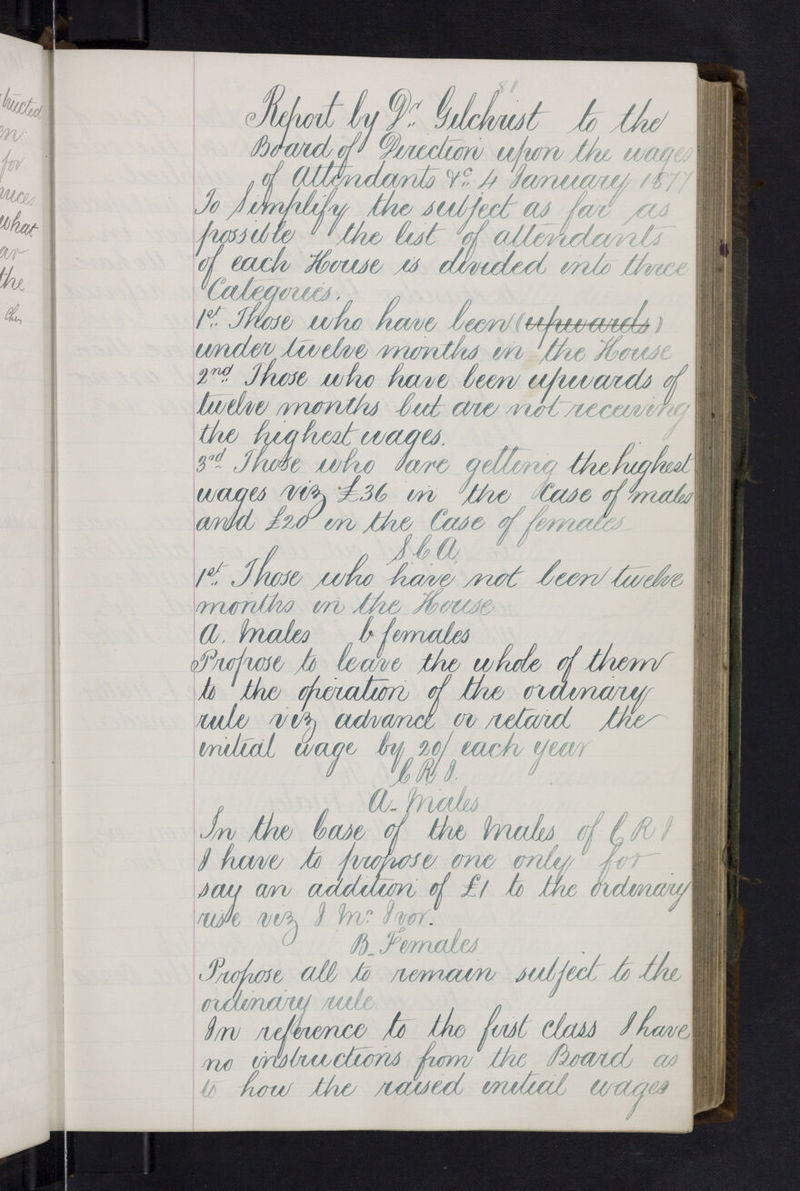 81
Report by Dr. Gilchrist to the
Board of Direction upon the wages
of Attendants &c. 4 January 1877
To Simplify the subject as far as
possible the list of attendants
of each House is divided into three
Categories.
1st. Those who have been (upwards)
under twelve months in the House
2nd. Those who have been upwards of
twelve months but are not receiving
the highest wages.
3rd Those who are getting the highest
wages viz £36 in the Case of males
and £20 in the Case of females
S C A
1st. Those who have not been twelve
months in the House
A. Males b females
Propose to leave the whole of them
to the operation of the ordinary
rule viz advance or retard the
initial wage by 20/ each year
C R I.
A. Males
In the Case of the Males of C R I
I have to propose one only for
say an addition of £1 to the ordinary
rise viz J Mc. Ivor.
B. Females
Propose all to remain subject to the
ordinary rule
In reference to the first class I have
no instructions from the Board as
to how the raised initial wages
bructed
en
for
what
ar
the